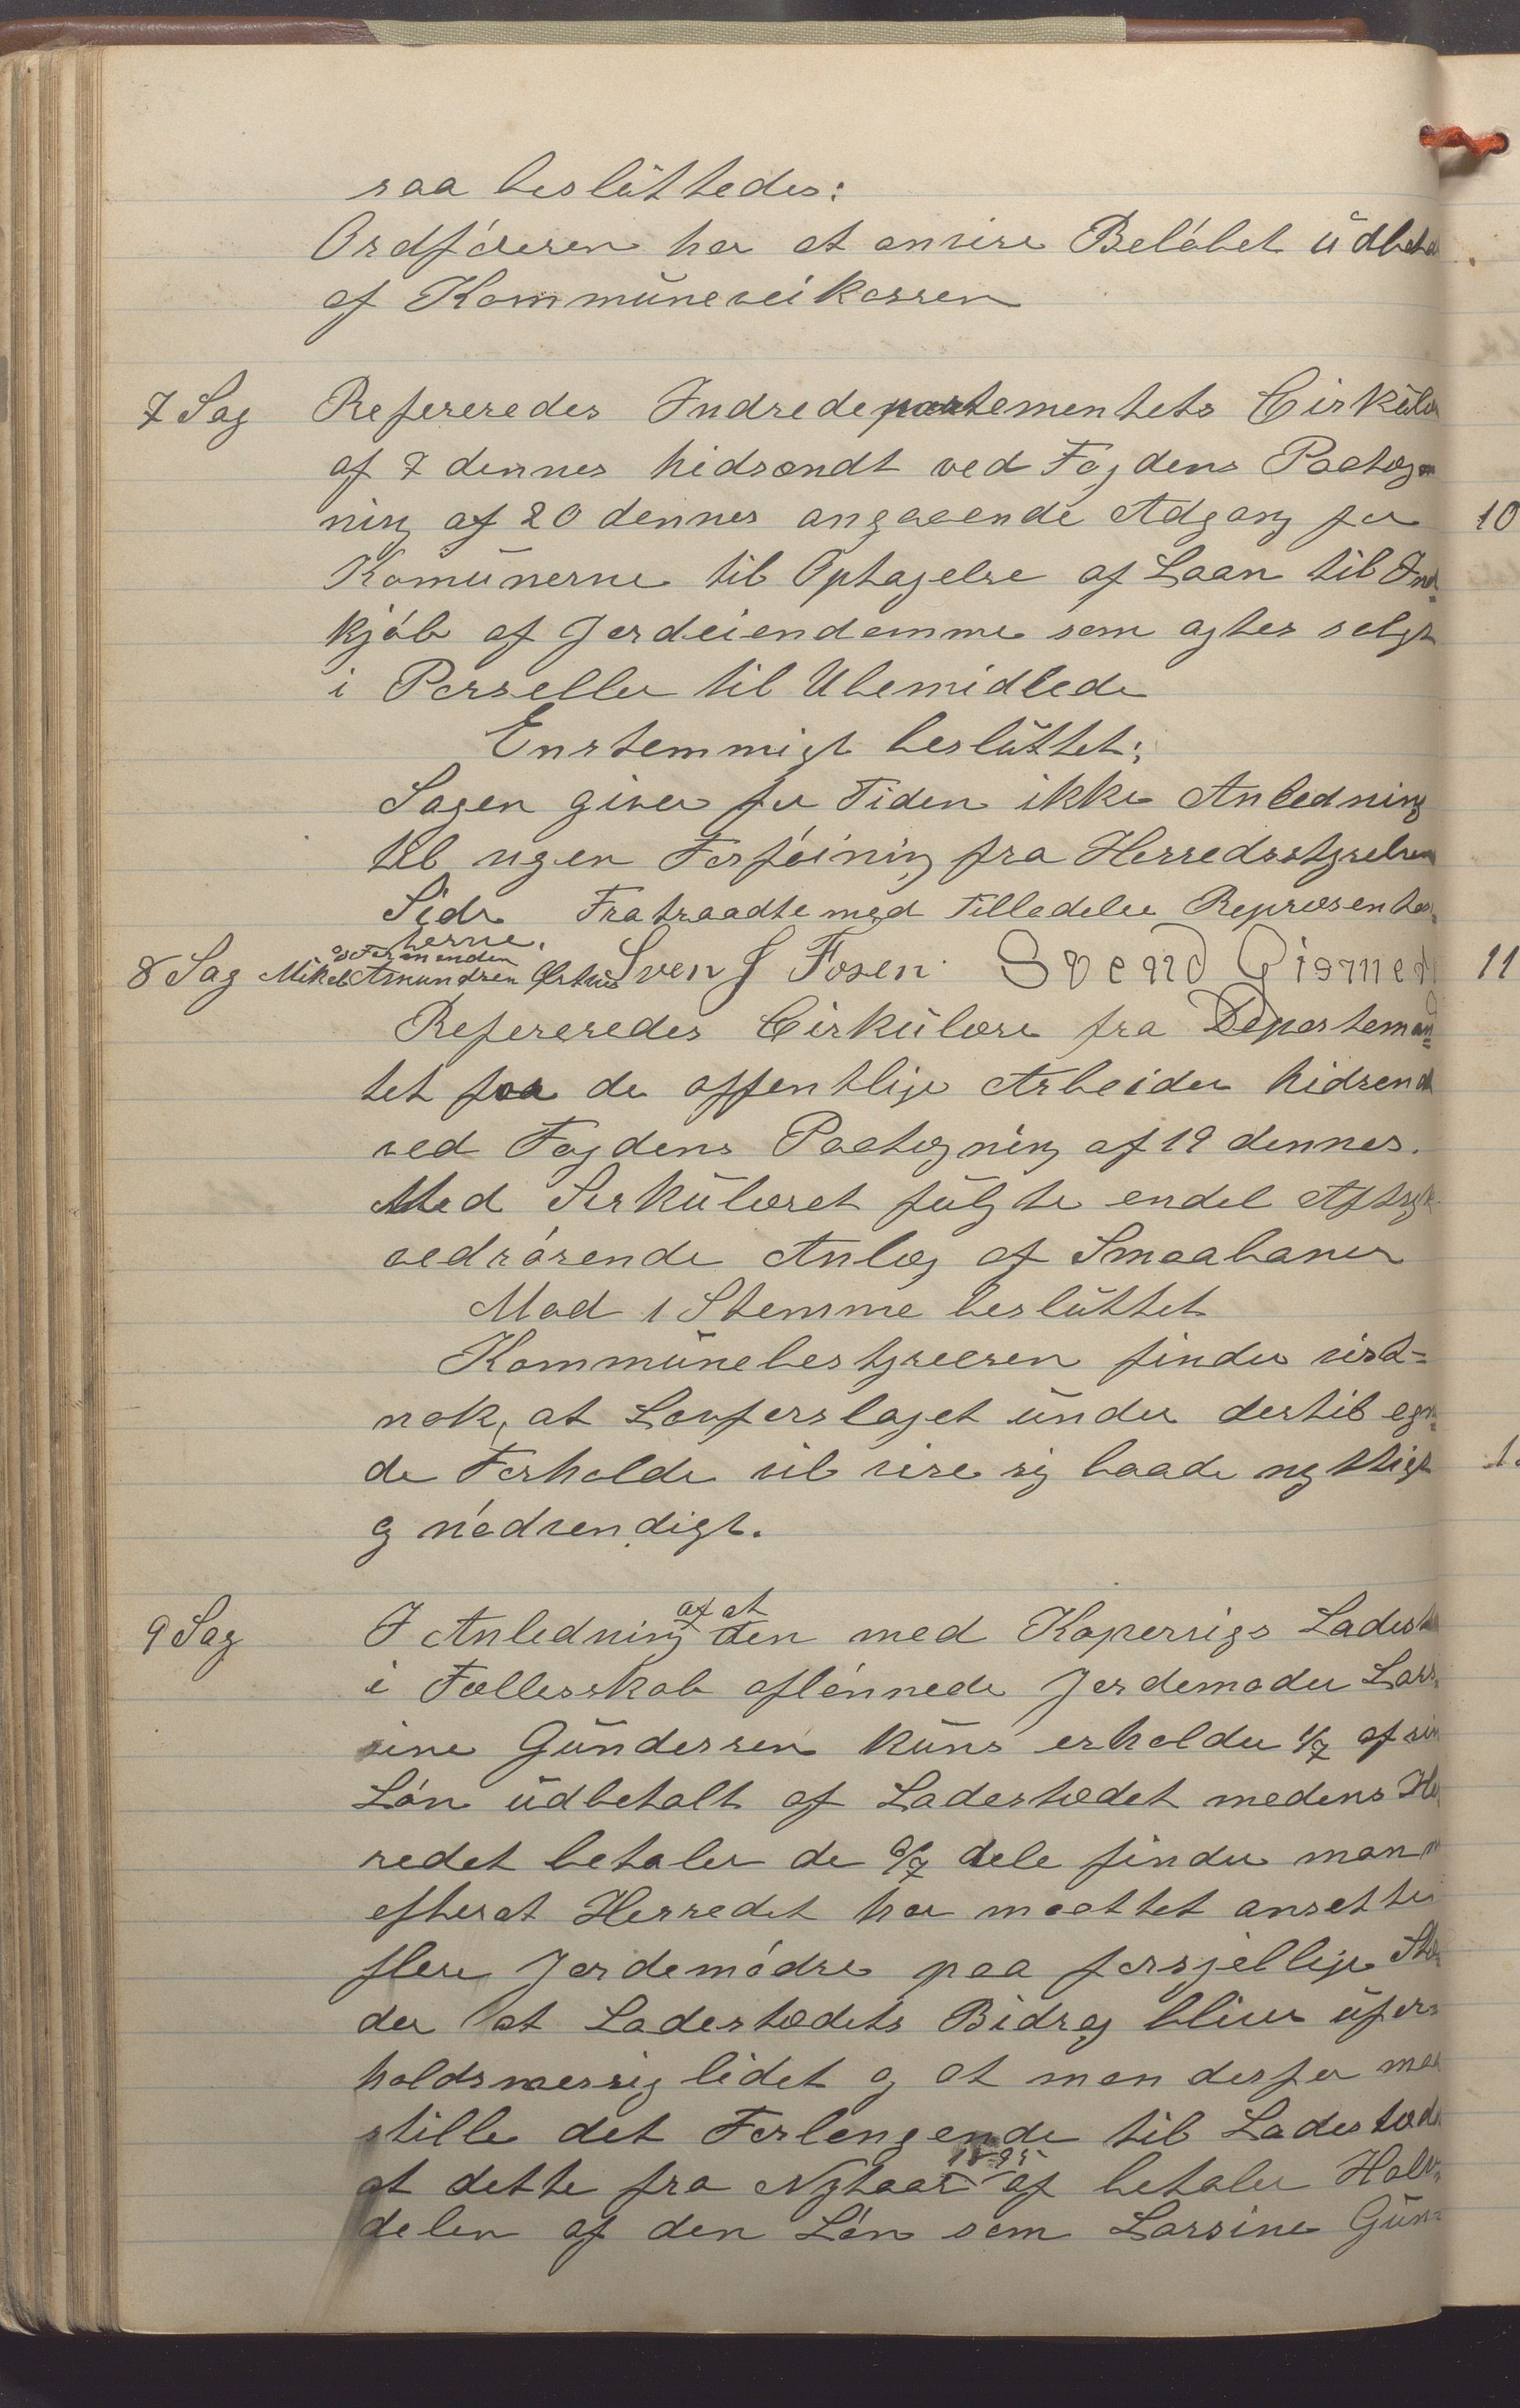 saa besluttedes:
Ordføreren har at anvise Beløbet udbetal
af Kommuneveikassen
7 Sag Refereredes Indredepartementets Cirkulær
af 7 dennes hidsendt ved Fogdens Paateg
ning af 20 dennes angaaende Adgang for
Komunerne til Optagelse af Laan til Ind
kjøb af Jordeiendomme som agtes solgt
i Parseller til Ubemidlede
Enstemmigt besluttet:
Sagen giver for Tiden ikke Anledning
til nogen Forføining fra Herredsstyrelsen
Side. Fratraadte med Tilladelse Repræsentan
terne.
8 Sag Mikal Amundsen Sven J Fosen. Svend Gismer
Refereredes Cirkulære fra Departemen
tet for de offentlige Arbeider hidsend
ved Fogdens Paategning af 19 dennes.
Med Serkulæret fulgte endel Aftryk
vedrørende Anlæg af Smaabaner
Mod 1 Stemme besluttet
Kommunebestyreren finder vist=
nok, at Lovforslaget under dertil egn
de Forholde vil vise sig baade nyttigt
og nødvendigt.
9 Sag I Anledning af at den med Kopervigs Ladest
i Fællesskab aflønnede Jordemoder Lars
sine Gundersen kuns erholder 1/7 af sin
Løn udbetalt af Ladestædet medens Her
redet betaler de 6/7 dele finder man
efterat Herredet har maattet ansætte
flere Jordemødre paa forsjellige Stæ
der at Ladestædets Bidrag bliver ufor=
holdsmæssig lidet og at man derfor maa
stille det Forlengende til Ladestæde
at dette fra Nytaar 1895 af betaler Halv
delen af den Løn som Larsine Gun=
10
11